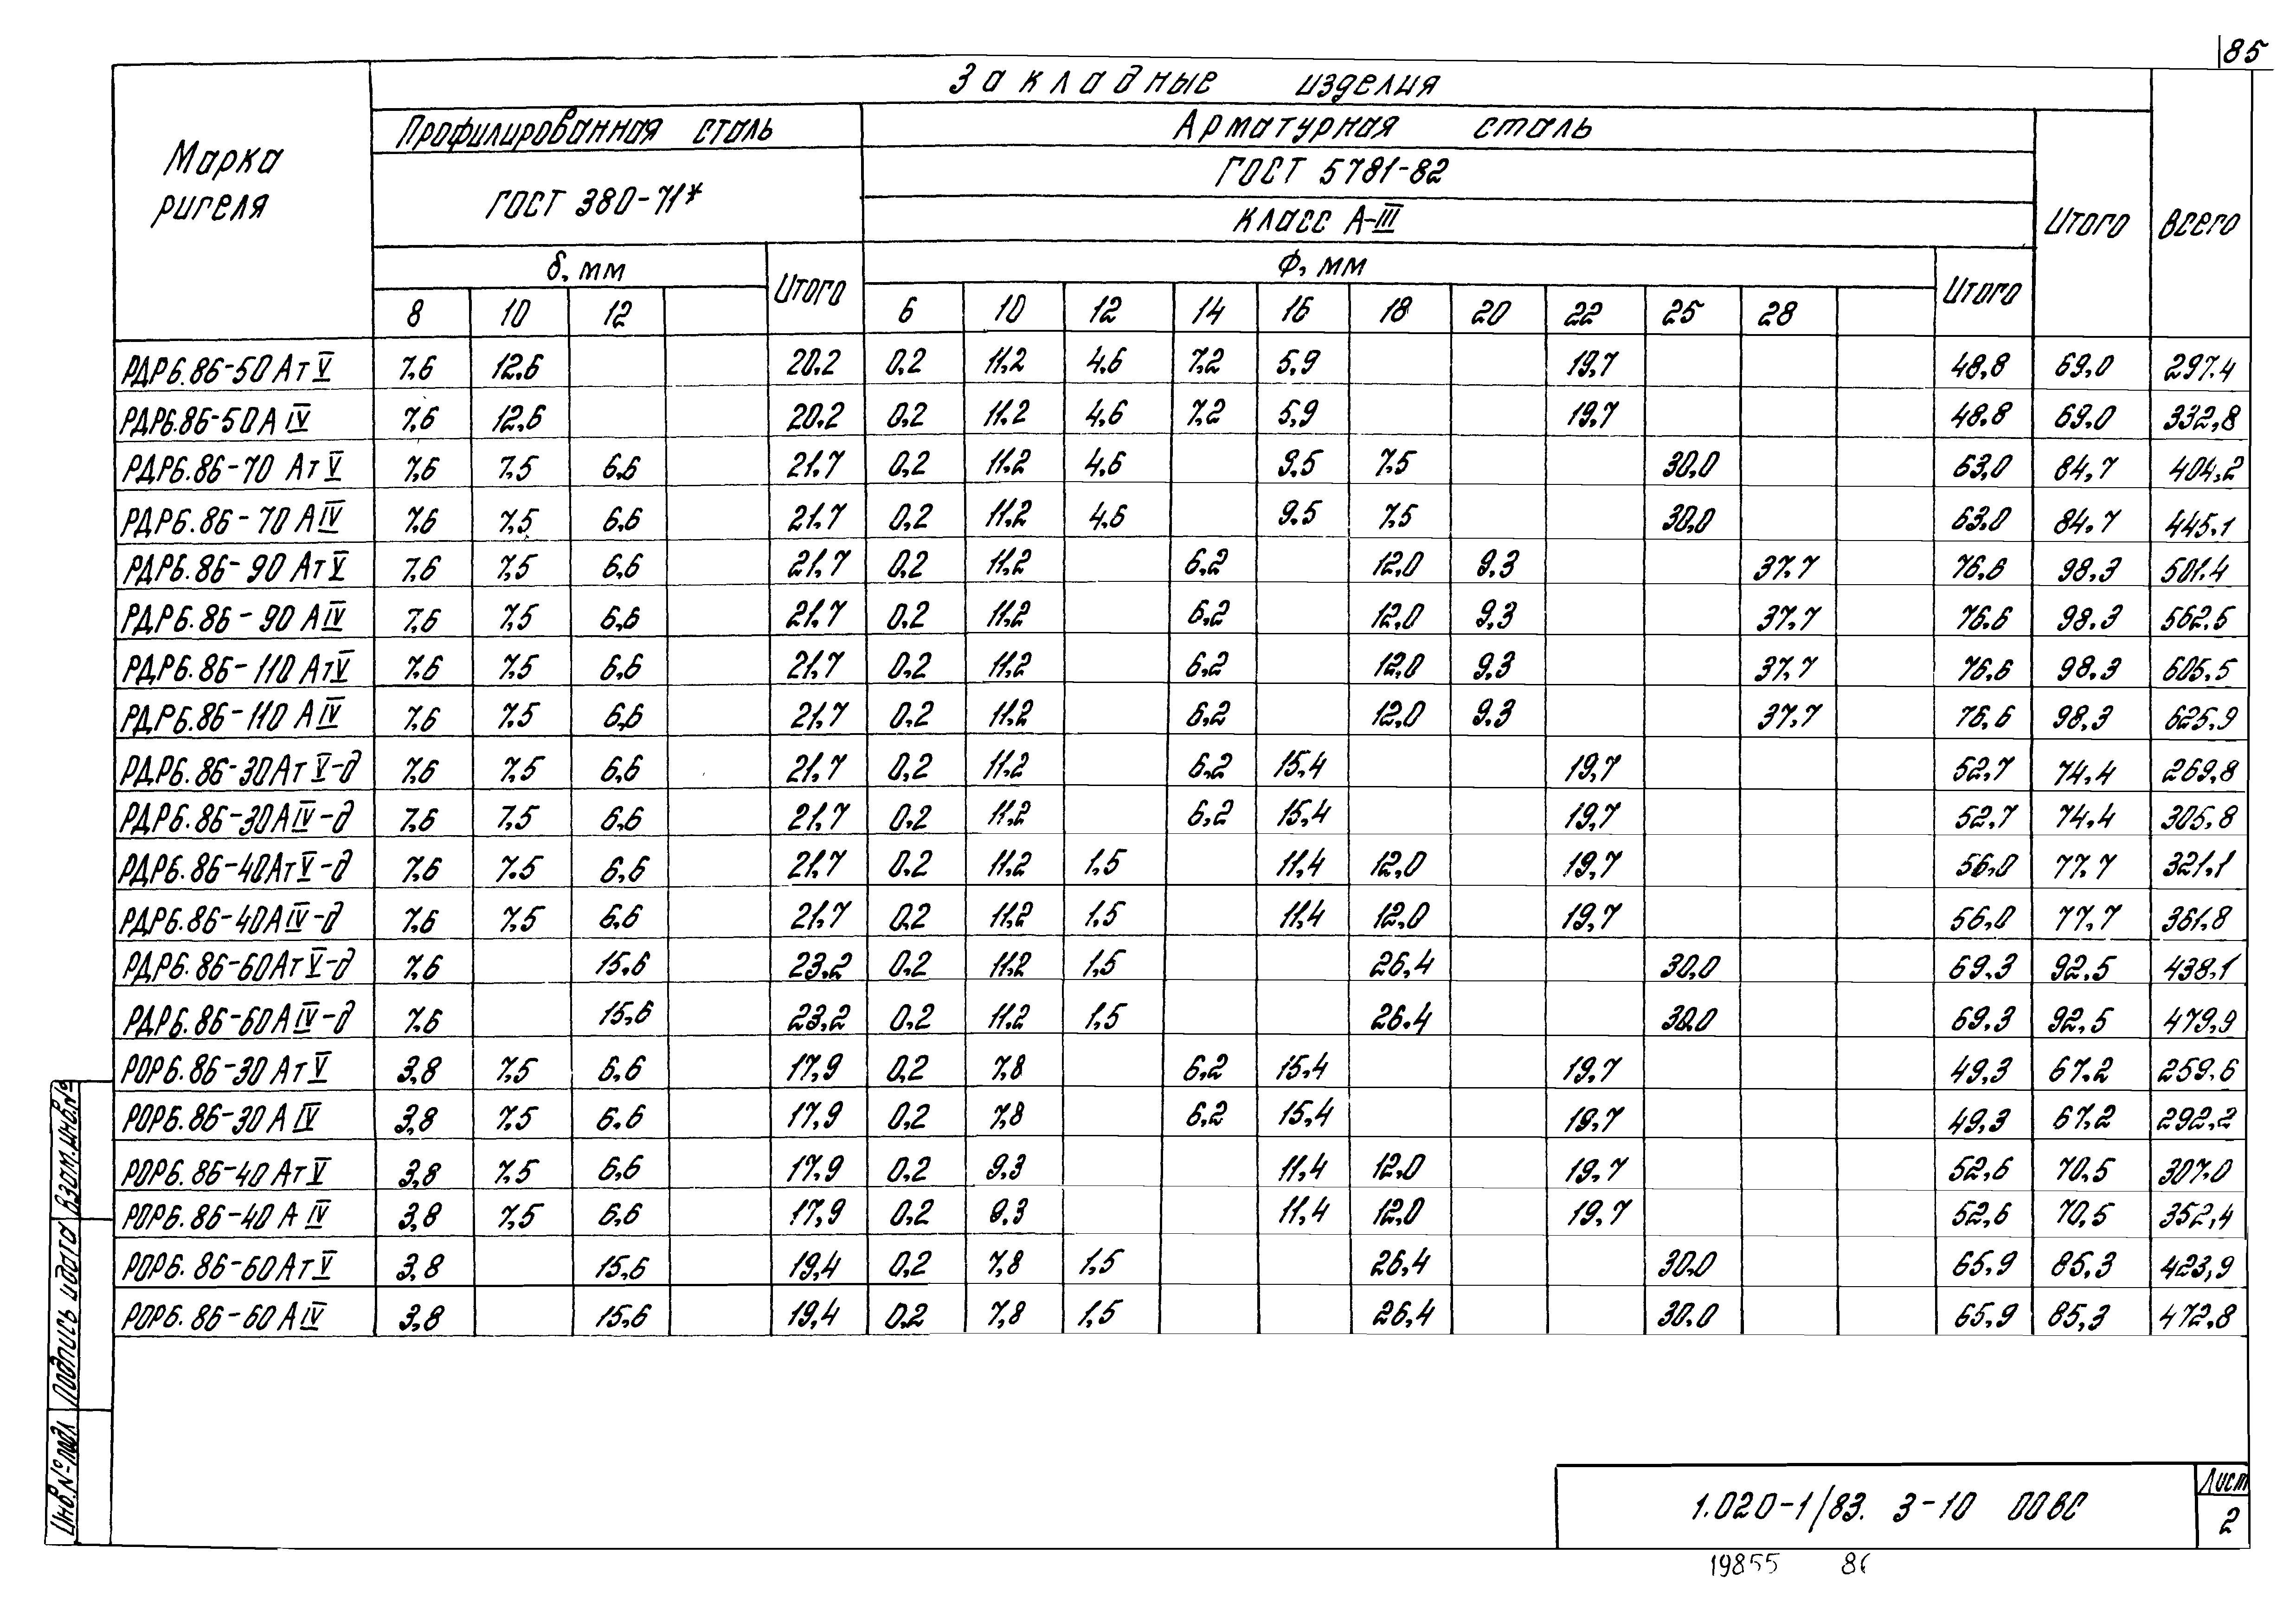 85
Марка ригеля
Закладные изделия
Профилированная сталь
Арматурная сталь
ГОСТ 380-71*
ГОСТ 5781-82
Класс А-III
Итого
Всего
δ, мм
Итого
Ф, мм
Итого
8 10 12 6 10 12 14 16 18 20 22 25 28
РДР6.86-50АтV 7,6 12,6 20.2 0,2 11,2 4,6 7,2 5,9 19,7 48,8 69,0 297.4
РДР6.86-50АIV 7,6 12,6 20.2 0,2 11,2 4,6 7,2 5,9 19,7 48.8 69.0 332,8
РДР6.86-70 АтV 7,6 7,5 6,6 21,7 0,2 11,2 4,6 9.5 7,5 30,0 63,0 84,7 404,2
РДР6.86-70АIV 7,6 7,5 6,6 21,7 0,2 11,2 4,6 9.5 7,5 30,0 63.0 84.7 445,1
РДР6.86-90 АтV 7,6 7,5 6,6 21,7 0,2 11,2 6,2 12,0 9.3 37.7 76,6 98,3 501.4
РДР6.86-90 АIV 7,6 7,5 6,6 21,7 0,2 11,2 6,2 12,0 9,3 37,7 76.6 98.3 562.5
РДР6.86-110 АтV 7,6 7,5 6,6 21,7 0,2 11,2 6,2 12,0 9.3 37.7 76,6 98.3 605,5
РДР6.86-110 АIV 7,6 7,5 6,6 21,7 0,2 11,2 6,2 12,0 9.3 37,7 76,6 98,3 625,9
РДР6.86-30АтV-д 7,6 7,5 6,6 21,7 0,2 11,2 6,2 15,4 19,7 52,7 74,4 269,8
РДР6.86-30АIV-д 7,6 7,5 6,6 21,7 0,2 11,2 6,2 15,4 19,7 52,7 74,4 305,8
РДР6.86-40АтV-д 7,6 7,5 6,6 21,7 0,2 11,2 1,5 11,4 12,0 19,7 56,0 77,7 321,1
РДР6.86-40АIV-д 7,6 7,5 6,6 21,7 0,2 11,2 1,5 11,4 12,0 19,7 56,0 77,7 361,8
РДР6.86-60АтV-д 7,6 15,6 23,2 0,2 11,2 1,5 26,4 30,0 69,3 92,5 438,1
РДР6.86-60АIV-д 7,6 15,6 23,2 0,2 11,2 1,5 26.4 30.0 69,3 92,5 479,9
РОР6.86-30 АтV 3,8 7,5 6,6 17,9 0,2 7,8 6,2 15,4 19,7 49,3 67,2 259,6
РОР6.86-30 АIV 3,8 7,5 6,6 17,9 0,2 7,8 6,2 15,4 19,7 49,3 67,2 292,2
РОР6.86-40 АтV 3,8 7,5 6,6 17,9 0,2 9.3 11,4 12,0 19,7 52,6 70,5 307.0
РОР6.86-40 АIV 3,8 7,5 6,6 17,9 0,2 9.3 11,4 12,0 19,7 52,6 70,5 352,4
РОР6.86-60АтV 3,8 15,6 19,4 0,2 7,8 1,5 26,4 30.0 65,9 85,3 423,9
РОР6.86-60 АIV 3,8 15,6 19,4 0,2 7,8 1,5 26,4 30.0 65,9 85,3 472,8
Инв.№подл. Подпись и дата Взам.инв.№
1.020-1/83. 3-10 00ВС
Лист
2
19855 86